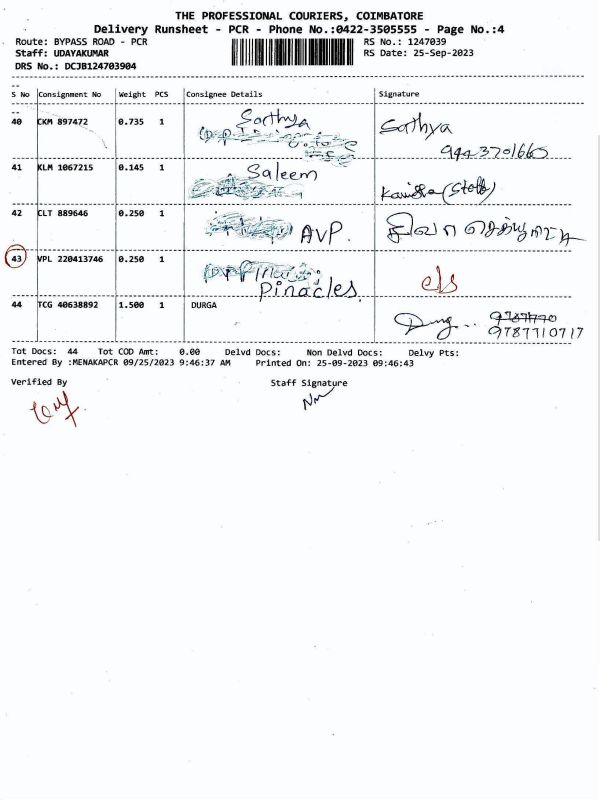 THE PROFESSIONAL COURIERS, COIMBATORE
Delivery Runsheet - PCR - Phone No.:0422-3505555 - Page No.:4
Route: BYPASS ROAD - PCR RS No.: 1247039
Staff: UDAYAKUMAR RS Date: 25-Sep-2023
DRS No.: DCJB124703904
S No Consignment No Weight PCS Consignee Details Signature
40 CKM 897472 0.735 1 Sathya Sathya
9443701660
41 KLM 1067215 0.145 1 Saleem
(Staff)
42 CLT 889646 0.250 1 AVP.
43 VPL 220413746 0.250 1 Pinacles c/s
44 TCG 40638892 1.500 1 DURGA
9787710717
Tot Docs: 44 Tot COD Amt: 0.00 Delvd Docs: Non Delvd Docs: Delvy Pts:
Entered By :MENAKAPCR 09/25/2023 9:46:37 AM Printed On: 25-09-2023 09:46:43
Verified By Staff Signature